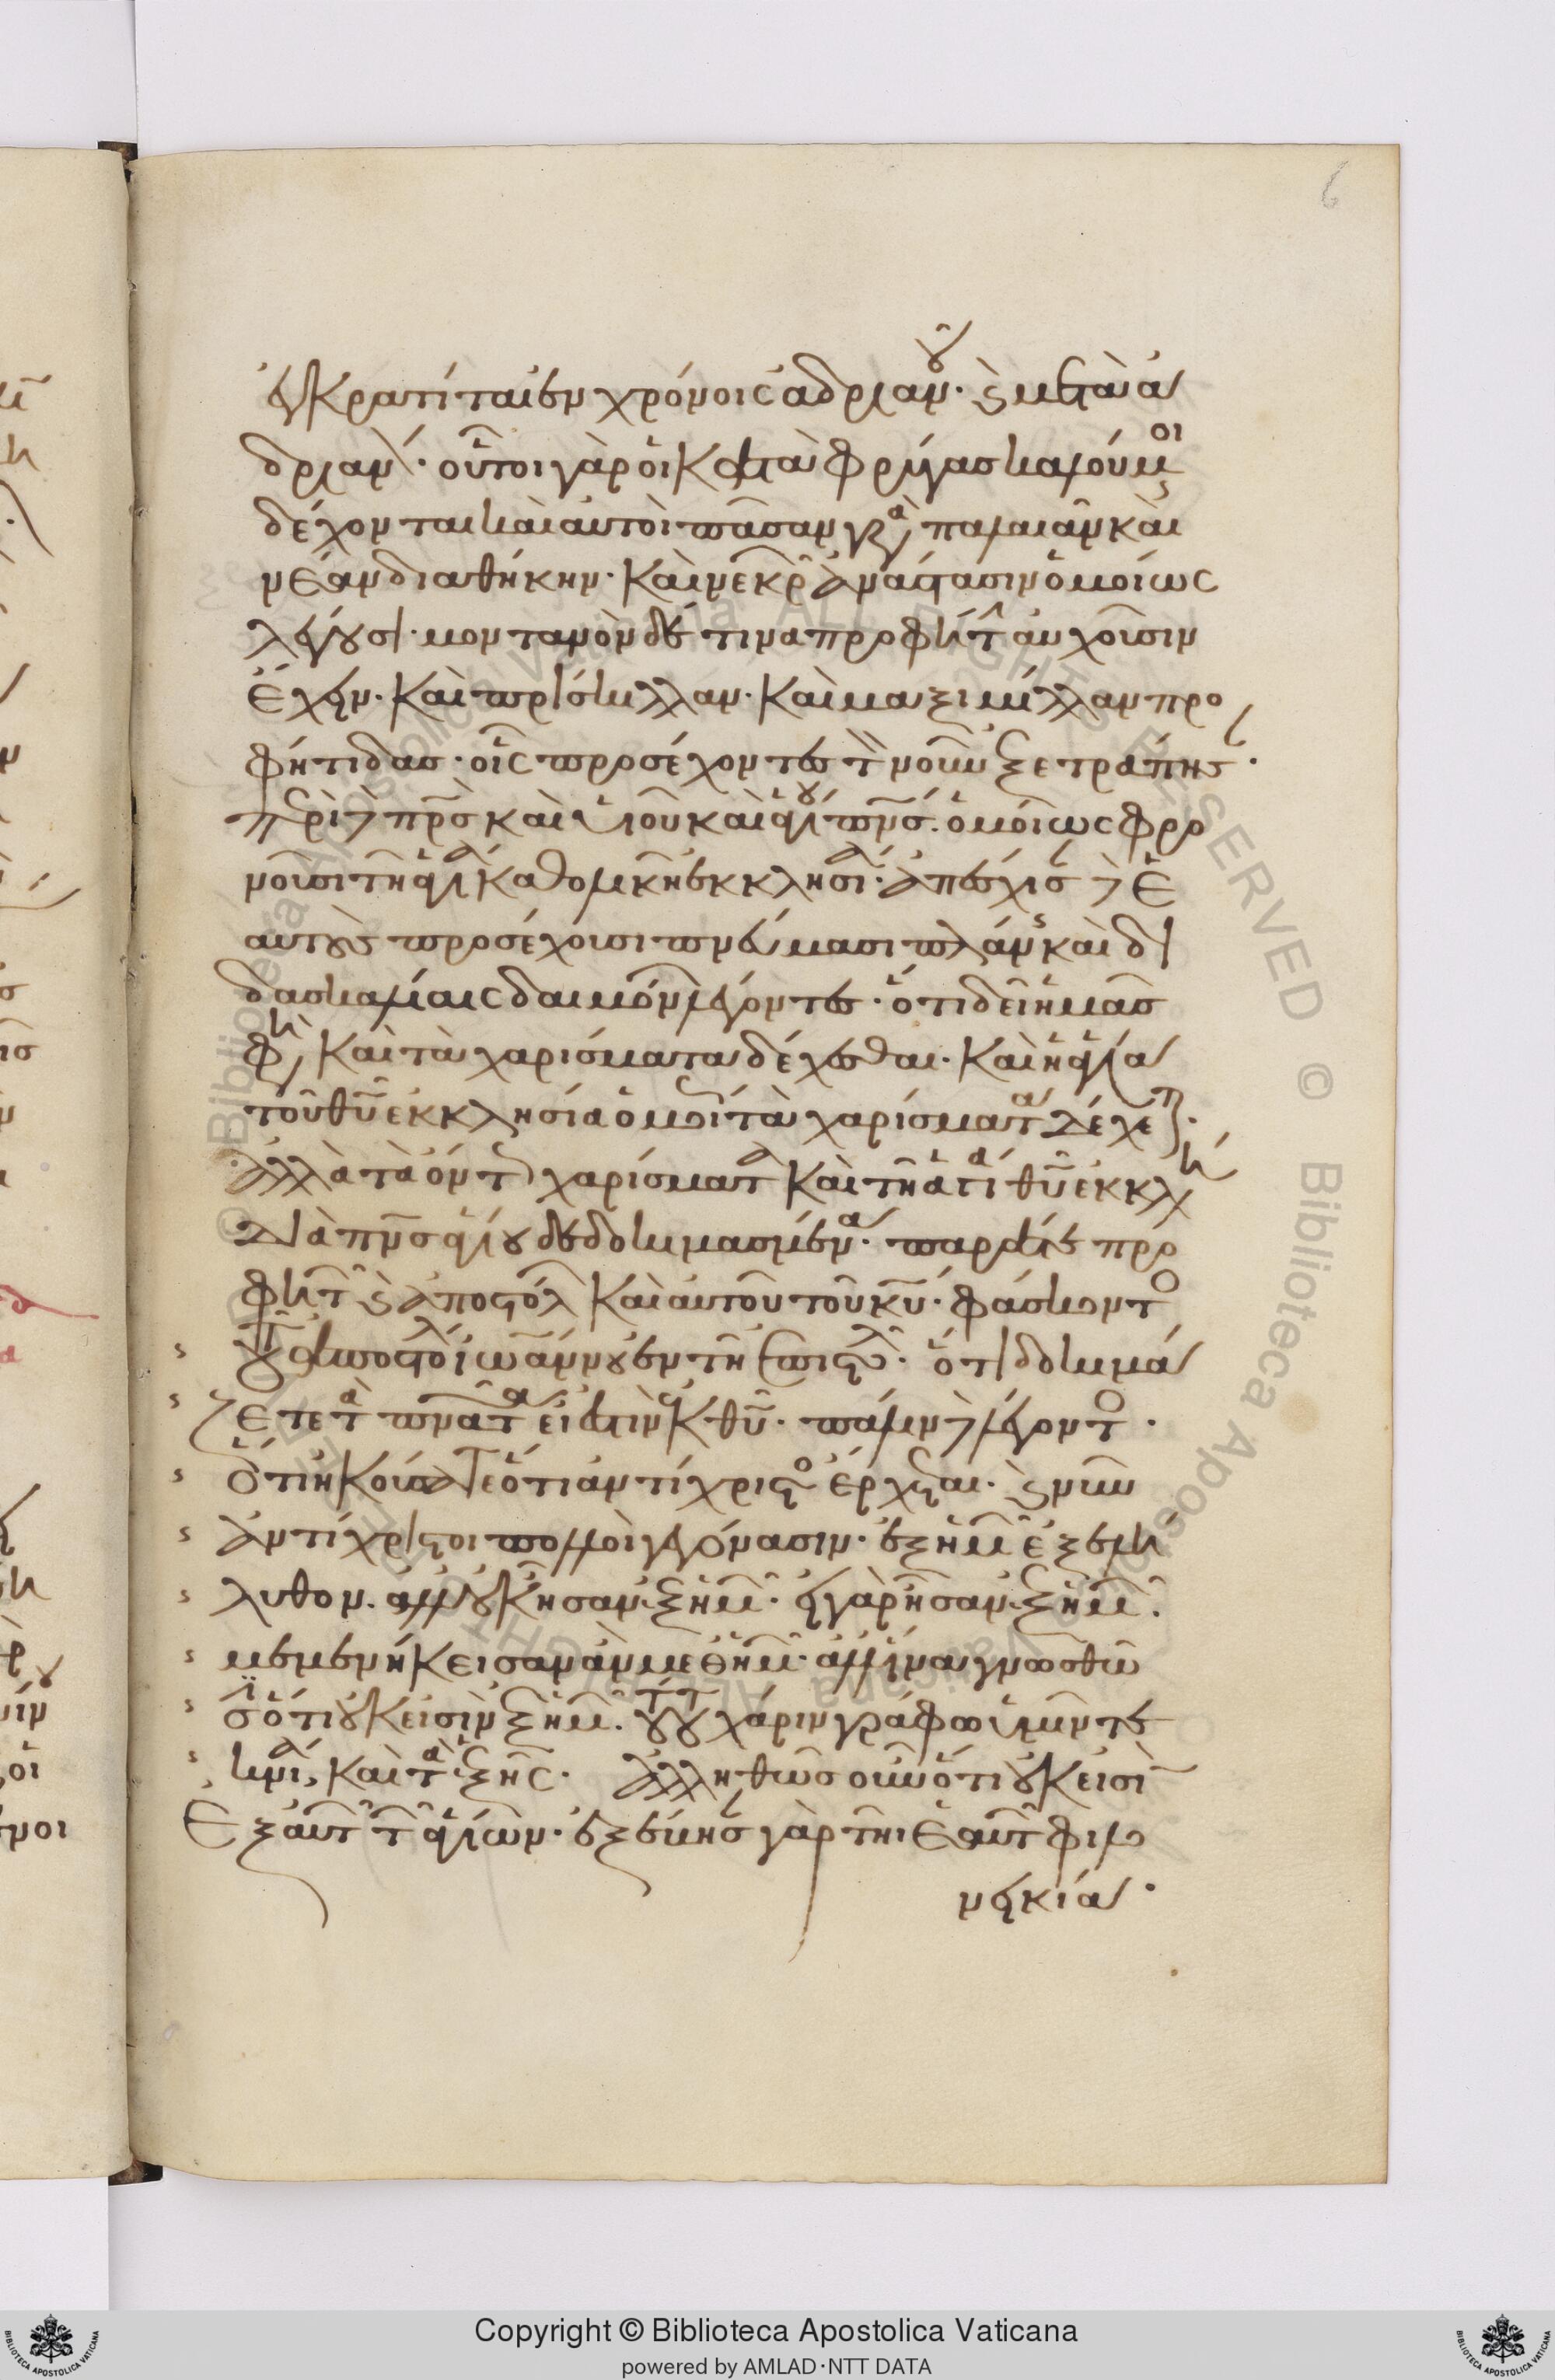 6
ἐγκρατῖται ἐν χρόνοις ἀδριανοῦ· καὶ μετὰ ἀ
δριανόν· οὗτοι γὰρ οἱ κατὰ φρύγας καλούμενοι
δέχονται καὶ αὐτοὶ πᾶσαν γραφὴν παλαιὰν καὶ
νέαν διαθήκην· καὶ νεκρῶν ἀνάστασιν ὁμοίως
λέγουσι· μοντανὸν δέ τινα προφήτην αὐχοῦσιν
ἔχειν· καὶ πρίσκιλλαν· καὶ μαξιμίλλαν προ
φήτιδας· οἷς προσέχοντες τὸν νοῦν ἐξετράπησαν·
περὶ δὲ πρς καὶ υἱοῦ καὶ ἁγίου πνς· ὁμοίως φρο
νοῦσι τῆ ἁγία καθολικῆ ἐκκλησία· ἀπέσχισαν δὲ ἑ
αυτοὺς προσέχουσι πνεύμασι πλάνης καὶ δι
δασκαλίαις δαιμόνων λέγοντες· ὅτι δεῖ ἡμᾶς
φη καὶ τὰ χαρίσματα δέχεσθαι· καὶ ἡ ἁγία
τοῦ θυ ἐκκλησία ὁμοίως τὰ χαρίσματα δέχεται·
ἀλλὰ τὰ ὄντως χαρίσματα καὶ τῆ ἁγία θυ ἐκκλη
διὰ πνς ἁγίου δεδοκιμασμένα· παρά τε προ
φητῶν καὶ ἀποστόλων καὶ αὐτοῦ τοῦ κυ· φάσκοντος
τοῦ ἀποστόλου ἰωάννου ἐν τῆ ἐπιστολῆ· ὅτι δοκιμά
ζετε τὰ πνατα εἰ ἔστιν ἐκ θυ· πάλιν δὲ λέγοντος·
ὅτι ἠκούσατε ὅτι ἀντίχριστος ἔρχεται· καὶ νῦν
ἀντίχριστοι πολλοὶ γεγόνασιν· ἐξ ἡμῶν ἐξελή
λυθον· ἀλλ' οὐκ ἦσαν ἐξ ἡμῶν· εἰ γὰρ ἦσαν ἐξ ἡμῶν·
μεμενήκεισαν ἂν μεθ' ἡμῶν· ἀλλ' ἵνα γνωσθῶ
σι ὅτι οὐκ εἰσὶν ἐξ ἡμῶν· τούτου χάριν γράφω ὑμῖν τε
κνία, καὶ τὰ ἑξῆς· ἀλληθῶς οὖν ὅτι οὐκ εἰσὶ
ἐξ αὐτῶν τῶν ἁγίων· ἐξέβησαν γὰρ τῆ ἑαυτῶν φιλο
νεικία·
Copyright © Biblioteca Apostolica Vaticana
powered by AMLAD·NTT DATA